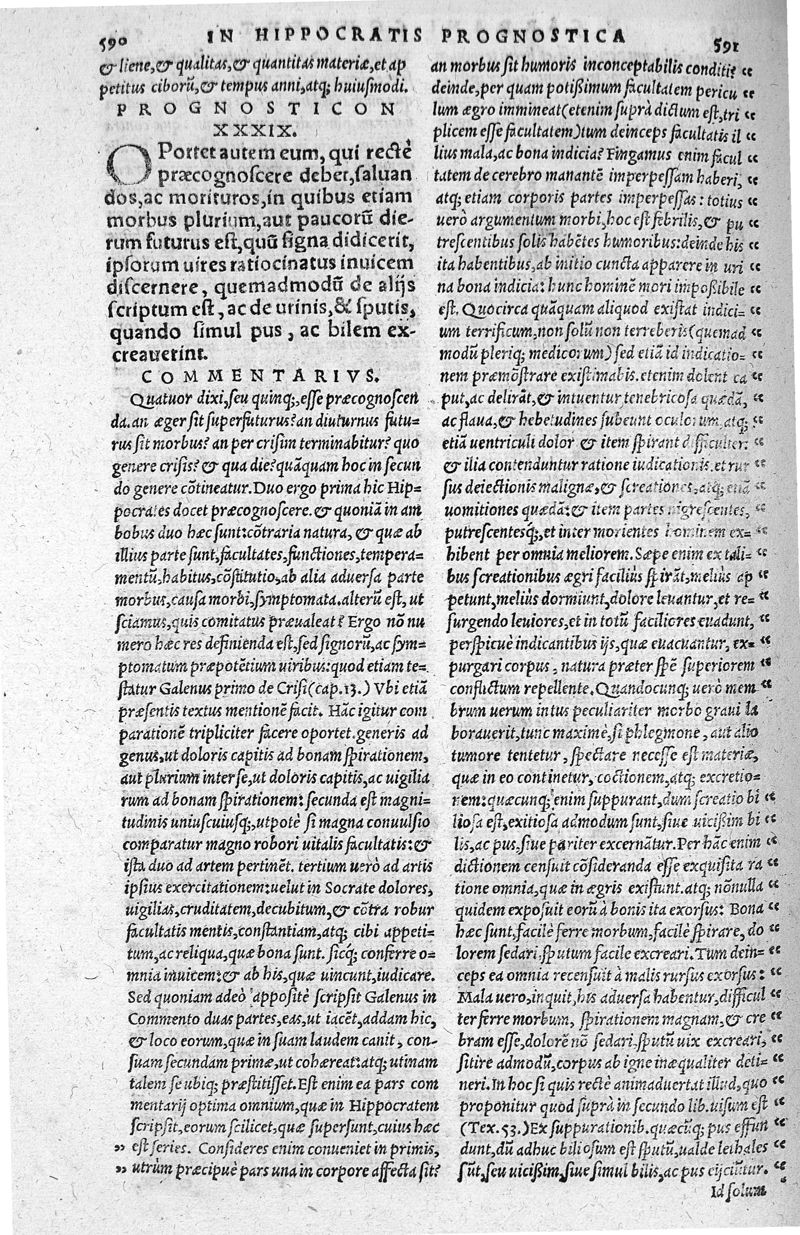 590 IN HIPPOCRATIS PROGNOSTICA 591
& liene, & qualitas, & quantitas materiæ, et ap
petitus ciborũ, & tempus anni, atq; huiusmodi.
PROGNOSTICON
XXXIX.
OPortet autem eum, qui rectè
præcognoscere debet, saluan
dos, ac morituros, in quibus etiam
morbus plurium, aut paucorũ die-
rum futurus est, quũ signa didicerit,
ipsorum uires ratiocinatus inuicem
discernere, quemadmodũ de alijs
scriptum est, ac de urinis, & sputis,
quando simul pus, ac bilem ex-
creauerint.
COMMENTARIVS.
Quatuor dixi, seu quinq;, esse præcognoscen
da. an æger sit superfuturus? an diuturnus futu-
rus sit morbus? an per crisim terminabitur? quo
genere crisis? & qua die? quãquam hoc in secun
do genere cõtineatur. Duo ergo prima hic Hip-
pocrates docet præcognoscere. & quoniã in am
bobus duo hæc sunt: cõtraria natura, & quæ ab
illius parte sunt, facultates, functiones, tempera-
mentũ, habitus, cõstitutio, ab alia aduersa parte
morbus, causa morbi, symptomata. alterũ est, ut
sciamus, quis comitatus præualeat? Ergo nõ nu
mero hæc res definienda est, sed signorũ, ac sym-
ptomatum præpotẽtium uiribus: quod etiam te-
statur Galenus primo de Crisi (cap. 13.) Vbi etiã
præsentis textus mentionẽ facit. Hãc igitur com
parationẽ tripliciter facere oportet. generis ad
genus, ut doloris capitis ad bonam spirationem,
aut plurium inter se, ut doloris capitis, ac uigilia
rum ad bonam spirationem: secunda est magni-
tudinis uniuscuiusq;, utpotè si magna conuulsio
comparatur magno robori uitalis facultatis: &
ista duo ad artem pertinẽt. tertium uerò ad artis
ipsius exercitationem: uelut in Socrate dolores,
uigilias, cruditatem, decubitum, & cõtra robur
facultatis mentis, constantiam, atq; cibi appeti-
tum, ac reliqua, quæ bona sunt. sicq; conferre o-
mnia inuicem: & ab his, quæ uincunt, iudicare.
Sed quoniam adeò appositè scripsit Galenus in
Commento duas partes, eas, ut iacẽt, addam hic,
& loco eorum, quæ in suam laudem canit, con-
suam secundam primæ, ut cohæreat: atq; utinam
talem se ubiq; præstitisset. Est enim ea pars com
mentarij optima omnium, quæ in Hippocratem
scripsit, eorum scilicet, quæ supersunt, cuius hæc
” est series. Consideres enim conueniet in primis,
” utrũm præcipuè pars una in corpore affecta sit?
an morbus sit humoris inconceptabilis conditis “
deinde, per quam potißimum facultatem pericu “
lum ægro immineat (etenim suprà dictum est, tri
plicem esse facultatem) tum deinceps facultatis il “
lius mala, ac bona indicia? Fingamus enim facul “
tatem de cerebro manantẽ imperpessam haberi, “
atq; etiam corporis partes imperpessas: totius “
uerò argumentum morbi, hoc est febrilis, & pu “
trescentibus solis habẽtes humoribus: deinde his “
ita habentibus, ab initio cuncta apparere in uri “
na bona indicia: hunc hominẽ mori impoßibile “
est. Quocirca quãquam aliquod existat indici- “
um terrificum, non solũ non terreberis (quemad “
modũ pleriq; medicorum) sed etiã id indicatio- “
nem præmõstrare existimabis. etenim dolent ca “
put, ac delirãt, & intuentur tenebricosa quædã, “
ac flaua, & hebetudines subeunt oculorum, atq; “
etiã uentriculi dolor & item spirant difficulter: “
& ilia contenduntur ratione iudicationis. et rur “
sus deiectionis malignæ, & screationes, atq; etiã “
uomitiones quædã: & item partes nigrescentes, “
putrescentesq;, et inter morientes hominem ex- “
hibent per omnia meliorem. Sæpe enim ex tali- “
bus screationibus ægri facilius spirãt, melius ap “
petunt, melius dormiunt, dolore leuantur, et re- “
surgendo leuiores, et in totũ faciliores euadunt, “
perspicuè indicantibus ijs, quæ euacuantur, ex- “
purgari corpus, natura præter spẽ superiorem “
conflictum repellente. Quandocunq; uerò mem “
brum uerum intus peculiariter morbo graui la
borauerit, tunc maximè, si phlegmone, aut alio
tumore tentetur, spectare necesse est materiæ,
quæ in eo continetur, coctionem, atq; excretio-
nem: quæcunq; enim suppurant, dum screatio bi “
liosa est, exitiosa admodum sunt, siue uicißim bi “
lis, ac pus, siue pariter excernãtur. Per hãc enim “
dictionem censuit cõsideranda esse exquisita ra “
tione omnia, quæ in ægris existunt. atq; nõnulla “
quidem exposuit eorũ à bonis ita exorsus: Bona “
hæc sunt, facilè ferre morbum, facilè spirare, do “
lorem sedari, sputum facile excreari. Tum dein- “
ceps ea omnia recensuit à malis rursus exorsus: “
Mala uero, inquit, his aduersa habentur, difficul “
ter ferre morbum, spirationem magnam, & cre “
bram esse, dolorẽ nõ sedari, sputũ uix excreari, “
sitire admodũ, corpus ab igne inæqualiter deti- “
neri. In hoc si quis rectè animaduertat illud, quo “
proponitur quod suprà in secundo lib. uisum est “
(Tex. 53.) Ex suppurationib. quæcũq; pus effun “
dunt, dũ adhuc biliosum est sputũ, ualde lethales “
sũt, seu uicißim, siue simul bilis, ac pus eijciuntur. “
Id solum